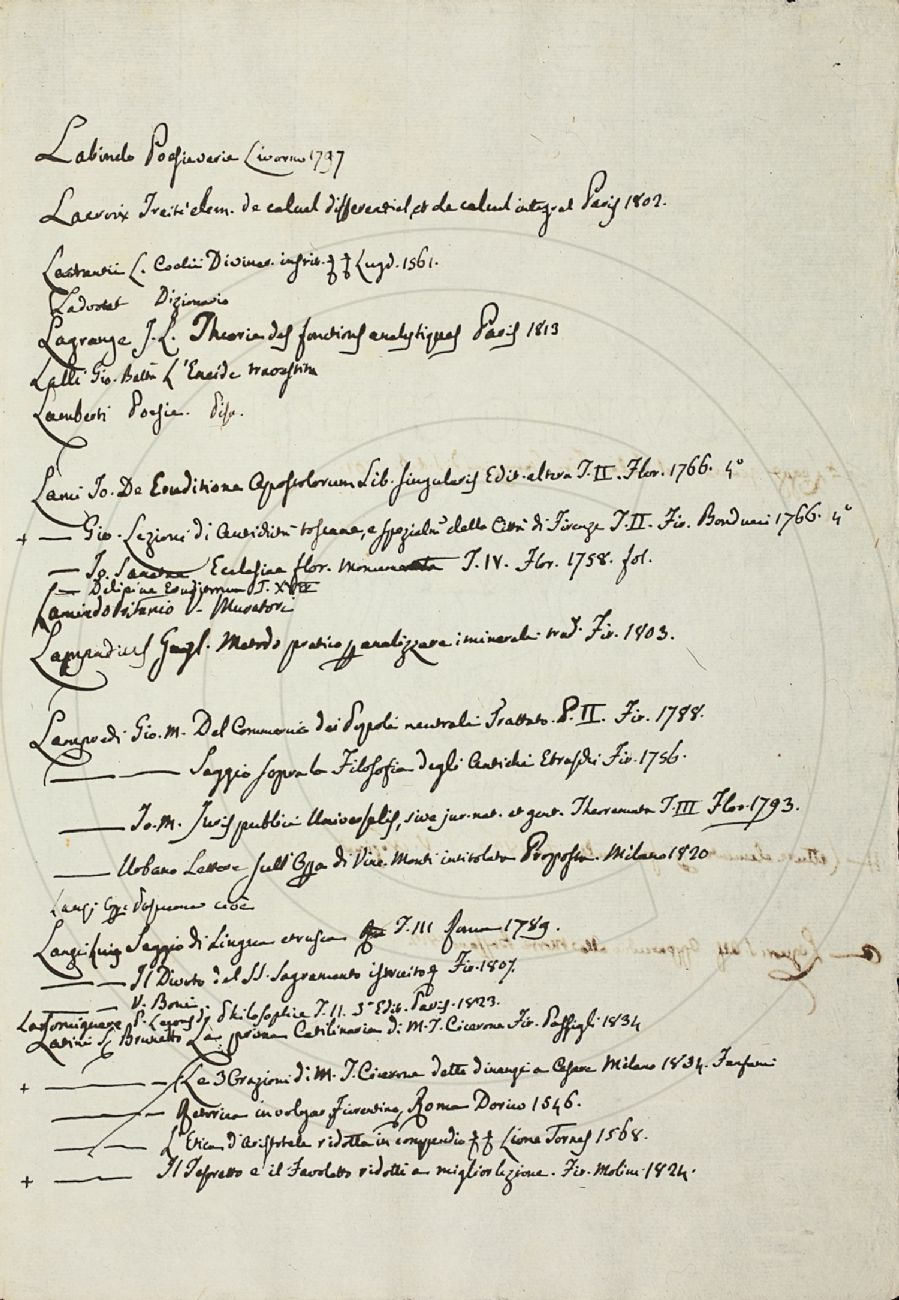 Labindo Poesie varie Livorno 1797
Lacroix Traité elem. de calcul differentiel, et de calcul integral Paris 1802.
Lactantii L. Coelii Divinar. instit. ‡ ‡ Lugd. 1561.
Ladvocat Dizionario
Lagrange J. L. Theorie des fonctions analytiques Paris 1813
Lalli Gio. Batta L'Eneide travestita
Lamberti Poesie. Pisa.
Lami Jo. De Eruditione Apostolorum Lib. singularis Edit. altera T. II. Flor. 1766. 4°
+ — Gio. Lezioni di Antichità toscane, e spezialm. della Città di Firenze T. II. Fir. Bonducci 1766. 4°
— Jo. Sanctae Ecclesiae flor. monumenta T. IV. Flor. 1758. fol.
— Deliciae Eruditorum T. XVIII
Lamindo Pritanio V. Muratori
Lampadius Gugl. Metodo pratico p analizzare i minerali trad. Fir. 1803.
Lampredi Gio. M. Del Commercio dei Popoli neutrali Trattato. P. II. Fir. 1788.
— — Saggio sopra la Filosofia degli Antichi Etruschi Fir. 1756.
— Jo. M. Juris publici Universalis, sive jur. nat. et gent. Theoremata T. III Flor. 1793.
— Urbano Lettere sull'Opa di Vinc. Monti intitolata Proposta. Milano 1820
Lanzi Opere Postume cioè
Lanzi Luigi Saggio di Lingua etrusca T. III Roma 1789.
— — Il Divoto del SS. Sagramento istruito Fir. 1807.
— — V. Boni
Laromiguiere P. Leçons de Philosophie T. II. 3e Edit. Paris. 1823.
Latini S. Brunetto La prima Catilinaria di M. T. Cicerone Fir. Passigli 1834
+ — — Le 3 Orazioni di M. T. Cicerone dette dinanzi a Cesare Milano 1834. Fanfani
— — Retorica in volgar Fiorentino, Roma Dorico 1546.
— — L'Etica d'Aristotele ridotta in compendio ‡ ‡ Lione Tornes 1568.
+ — — Il Tesoretto e il Favoletto ridotti a miglior lezione. Fir. Molini 1824.